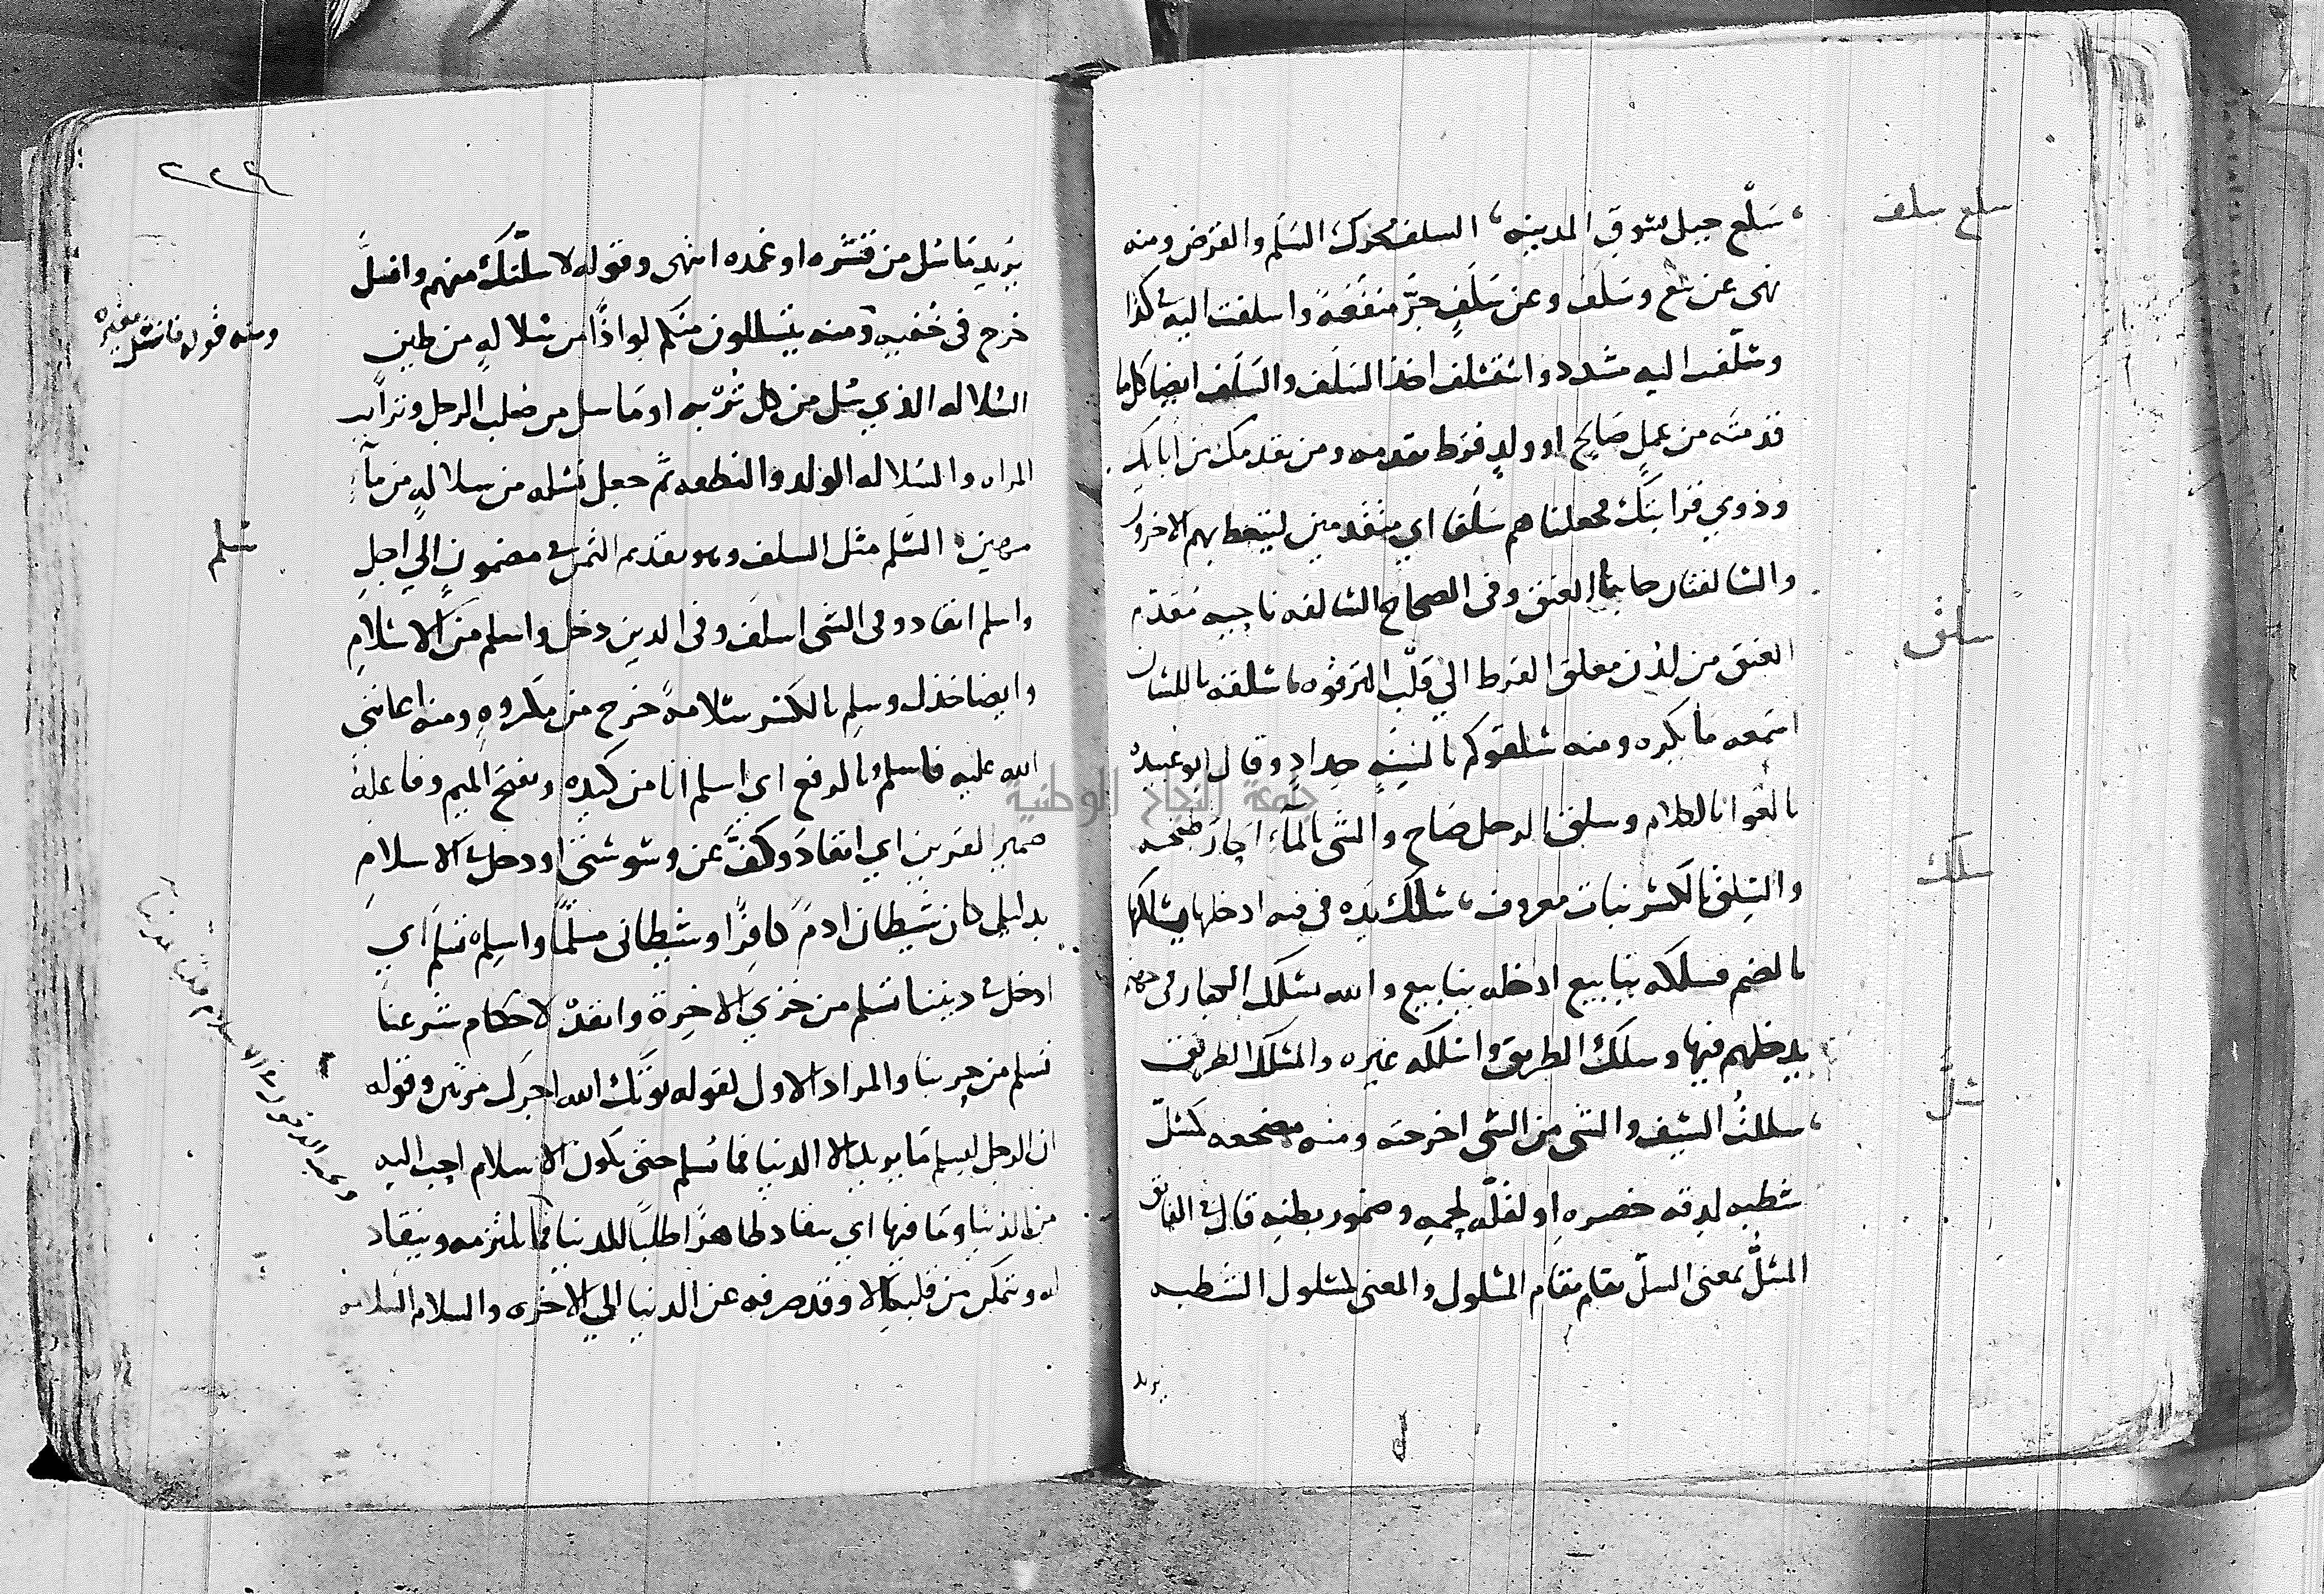 سلع سلف
سَلْع جبل بسوق المدينه، السلف محرك السَلَم والقرض ومنه
نهى عن بيع وسَلَف وعن سَلَفٍ جَرَّ منفعَةً واسلفت اليه في كذا
وسلّفت اليه مشدد واستسلف اخذ السَلَف والسَلَف ايضا كل ما
قدمته من عمل صَالح او ولدٍ فرَط تقدمه ومن تقدمك من ابايك
وذوي قرابتك فجعلناهم سَلَفا اي متقدمين ليتعظ بهم الاخرون
والسالفتان جانبا العنق وفى الصحاح السالفه ناحيه مُقدّم
سلق
العنق من لدُن معلق القرط الي قَلْت الترقوه، سلقه باللسان
اسمَعه مَا يكره ومنه سلقوكم بالسِنَةٍ حِدادٍ وقال ابو عبيده
بالغوا بالكلام وسلق الرجل صَاح والشى بالمآء الحار طبخه
سلك
والسِلق بالكسر نبات معروف، سَلَك يَدَه فى فيه ادخلها يسلكها
بالضم فسلكه ينابيع ادخله ينابيع والله يسلك الكفار فى جهنم
يدخلهم فيها وسلك الطريق واسلكه غيره والمسلك الطريق
سَلَّ
، سللتُ السَيف والشى من الشى اخرجته ومنه مضجعه كمَسَلّ
شطبه لدقه خصره او لقلّه لحمه وضمور بطنِه قال في الفائق
المسَلُّ بمعنى السلّ يقام مقام المسلول والمعنى كمسلول الشطبه
يريد
٢٢٩
يُريد مَا سُل من قشره او غمده انتهى وقوله لاسلّنّك منهم وانسلَّ
خرج فى خُفيه ومنه يتسللون منكم لِوَاذًا من سُلالهٍ من طين
ومنه قوله فانسل
السُلاله الذي سُل من كل تُرْبه او مَا سل من صُلب الرجل وترآيب
المراه والسُلاله الولد والنطفه ثم جعل نسْله من سلالهٍ من مآءٍ
سلم
مهينٍ، السَّلَم مثل السلف وهو تقديم الثمن في مضمونٍ الي اجلٍ
واسلم انقاد وفى الشى اسلف وفى الدين دخل واسلم من الاسْلامِ
وايضا خذل وسلِم بالكسر سَلامةً خرج من مكروهٍ ومنه اعاننى
الله عليه فاسلمُ بالرفع اي اسلم انا من كيده وبفتح الميم وفاعله
ضمير القرين اي انقادَ وكَفَّ عن وسْوستى او دخل في الاسلامِ
بدليل كان شيطان ادمَ كافِرًا وشيطانى مسلمًا واسلِم تسْلم اي
ادخل في ديننا تسلم من خزي الاخِرة وانقدْ لاحكام شرعنا
تسلم من حربنا والمراد الاول لقوله يوتك الله اجرك مرتين وقوله
ان الرجل ليسلم مَا يريد الا الدنيا فما يُسلم حتى يكون الاسلام احب اليه
من الدنيا ومَا فيها اي ينقاد ظاهرًا طلبًا للدنيا فما يلتزمه وينقاد
له ويتمكن من قلبه الا وقد صرفه عن الدنيا الي الاخره والسلام السلامه